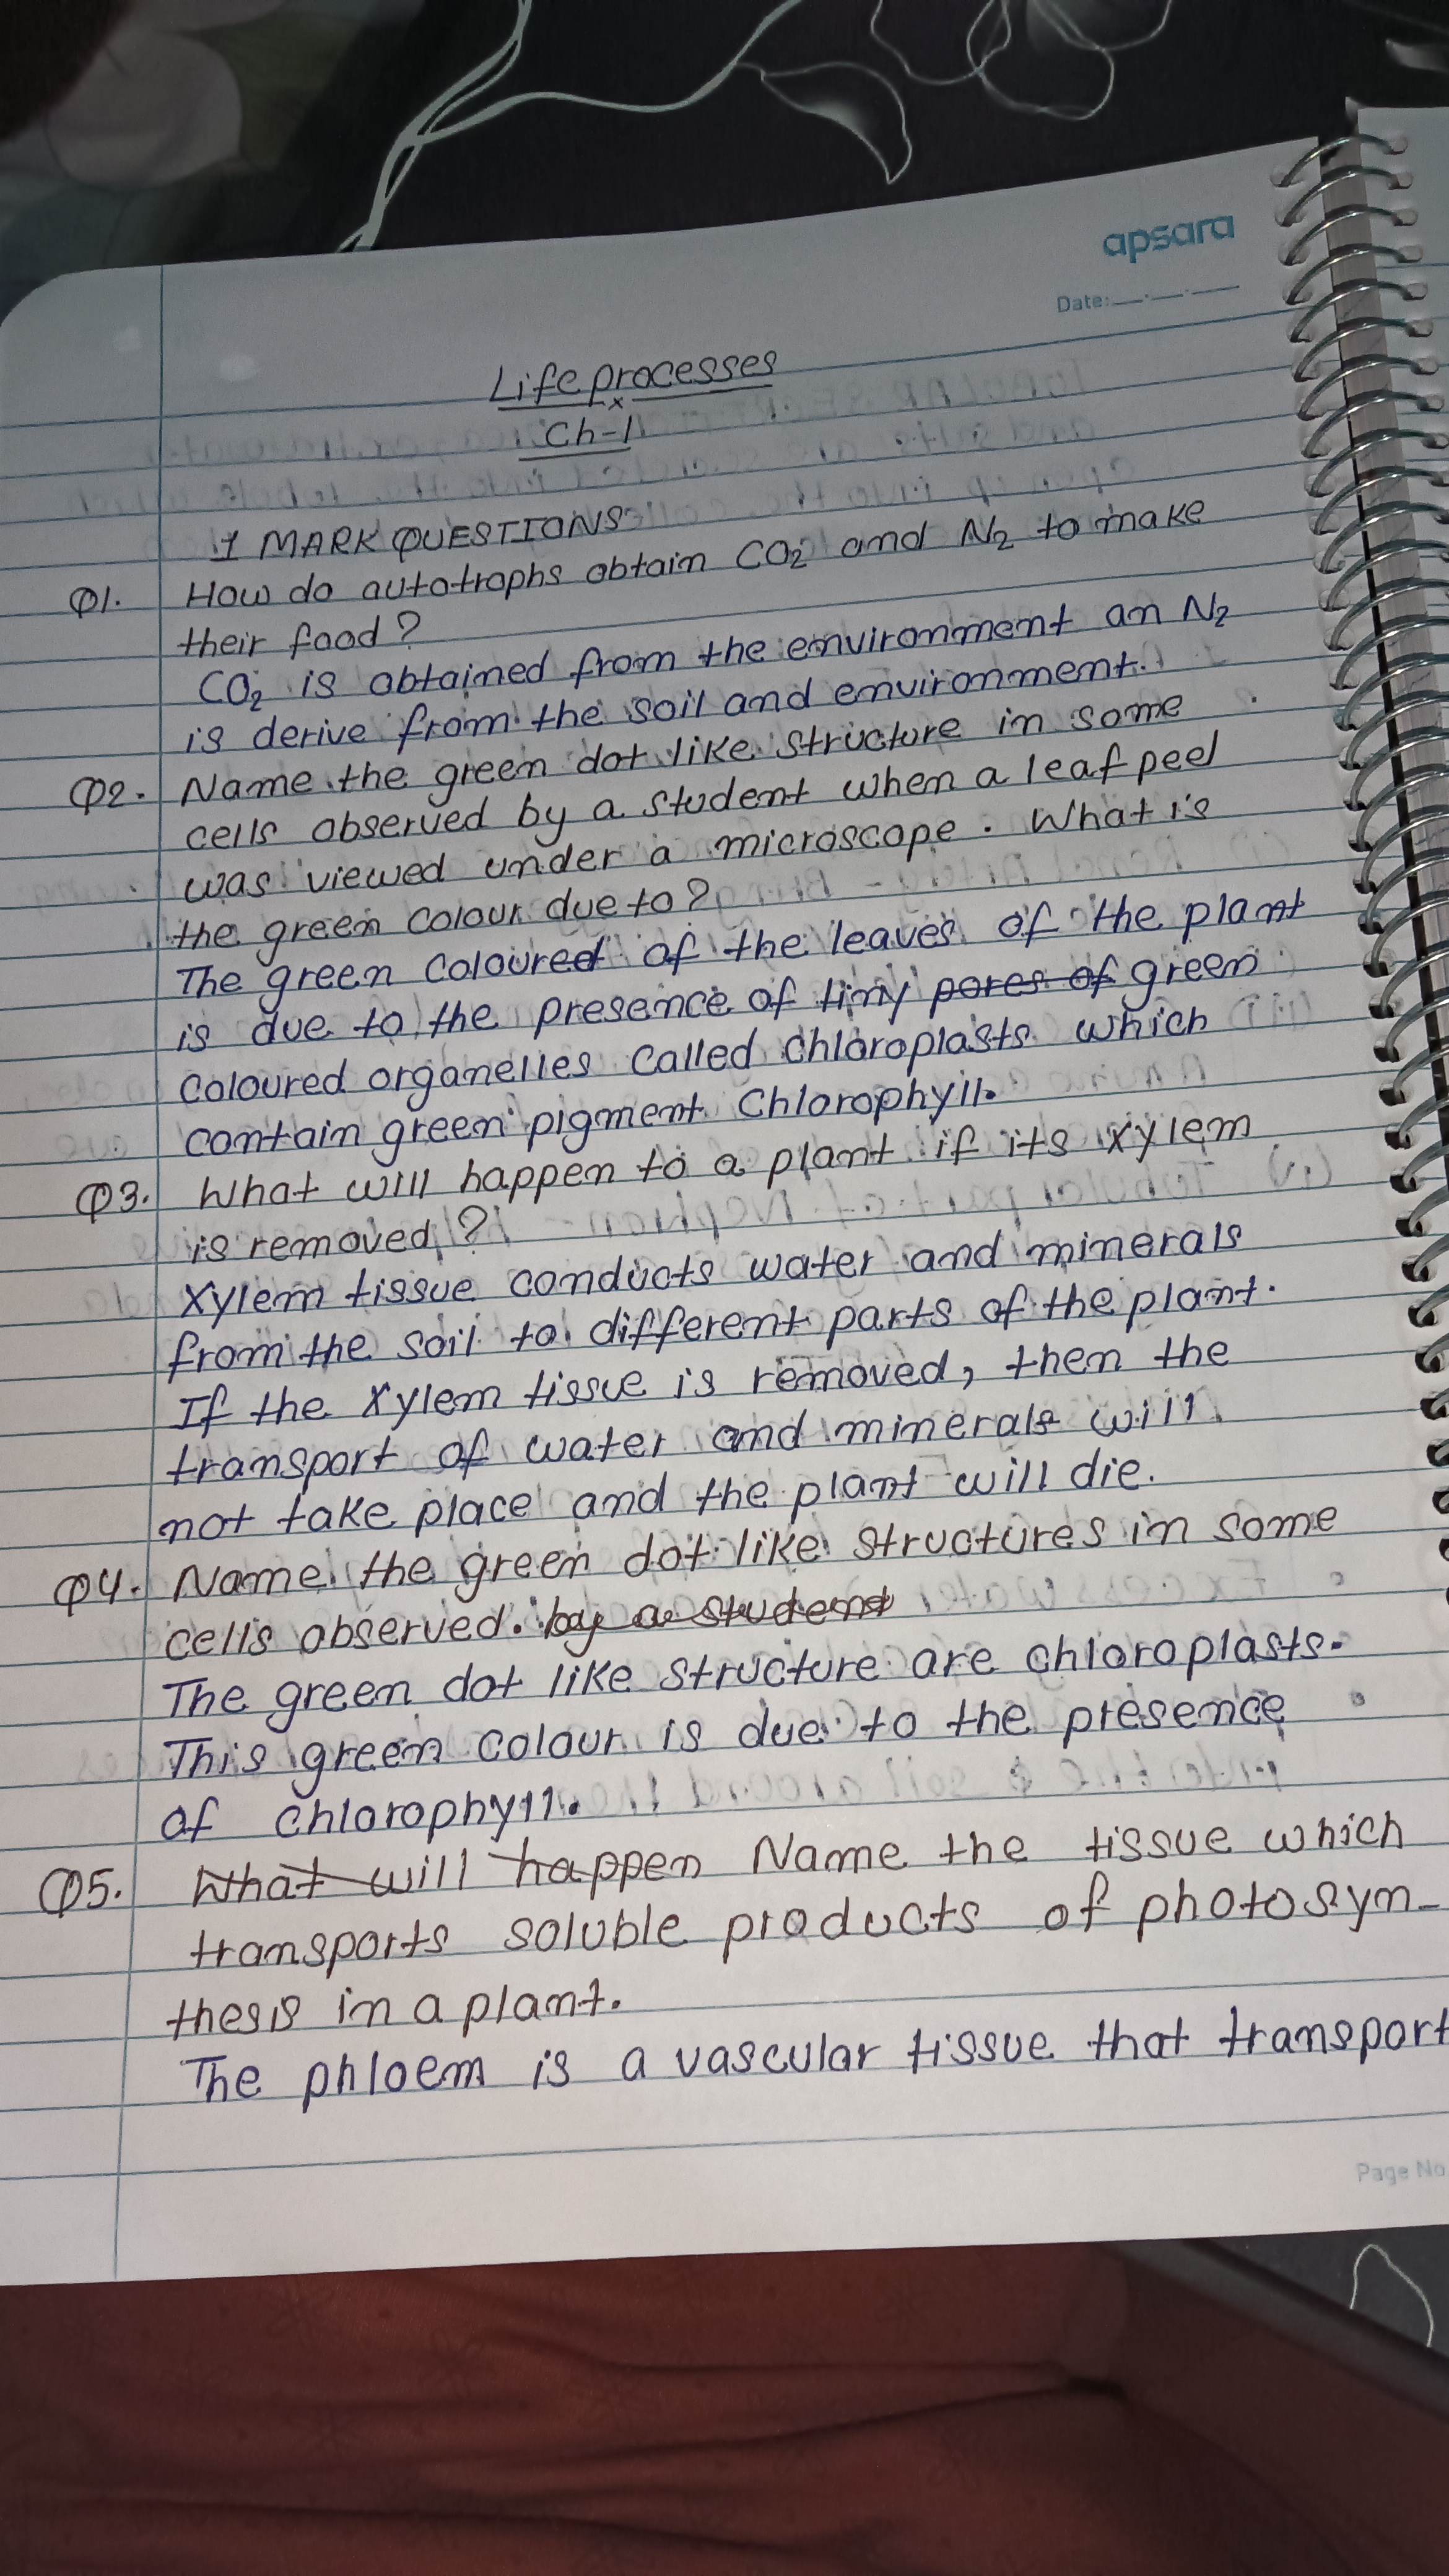 apsara
Date:
Life processes
Ch-1
1 MARK QUESTIONS
Q1. How do autotrophs obtain CO2 and N2 to make
their food?
CO2 is obtained from the environment an N2
is derive from the soil and environment.
Q2. Name the green dot like structure in some
cells observed by a student when a leaf peel
was viewed under a microscope. What is
the green colour due to?
The green coloured of the leaves of the plant
is due to the presence of tiny pores of green
coloured organelles called chloroplasts which
contain green pigment Chlorophyll.
Q3. What will happen to a plant if its xylem
is removed?
Xylem tissue conducts water and minerals
from the soil to different parts of the plant.
If the Xylem tissue is removed, then the
transport of water and minerals will
not take place and the plant will die.
Q4. Name the green dot like structures in some
cells observed. by a student
The green dot like structure are chloroplasts.
This green colour is due to the presence
of chlorophyll.
Q5. What will happen Name the tissue which
transports soluble products of photosyn-
thesis in a plant.
The phloem is a vascular tissue that transport
Page No